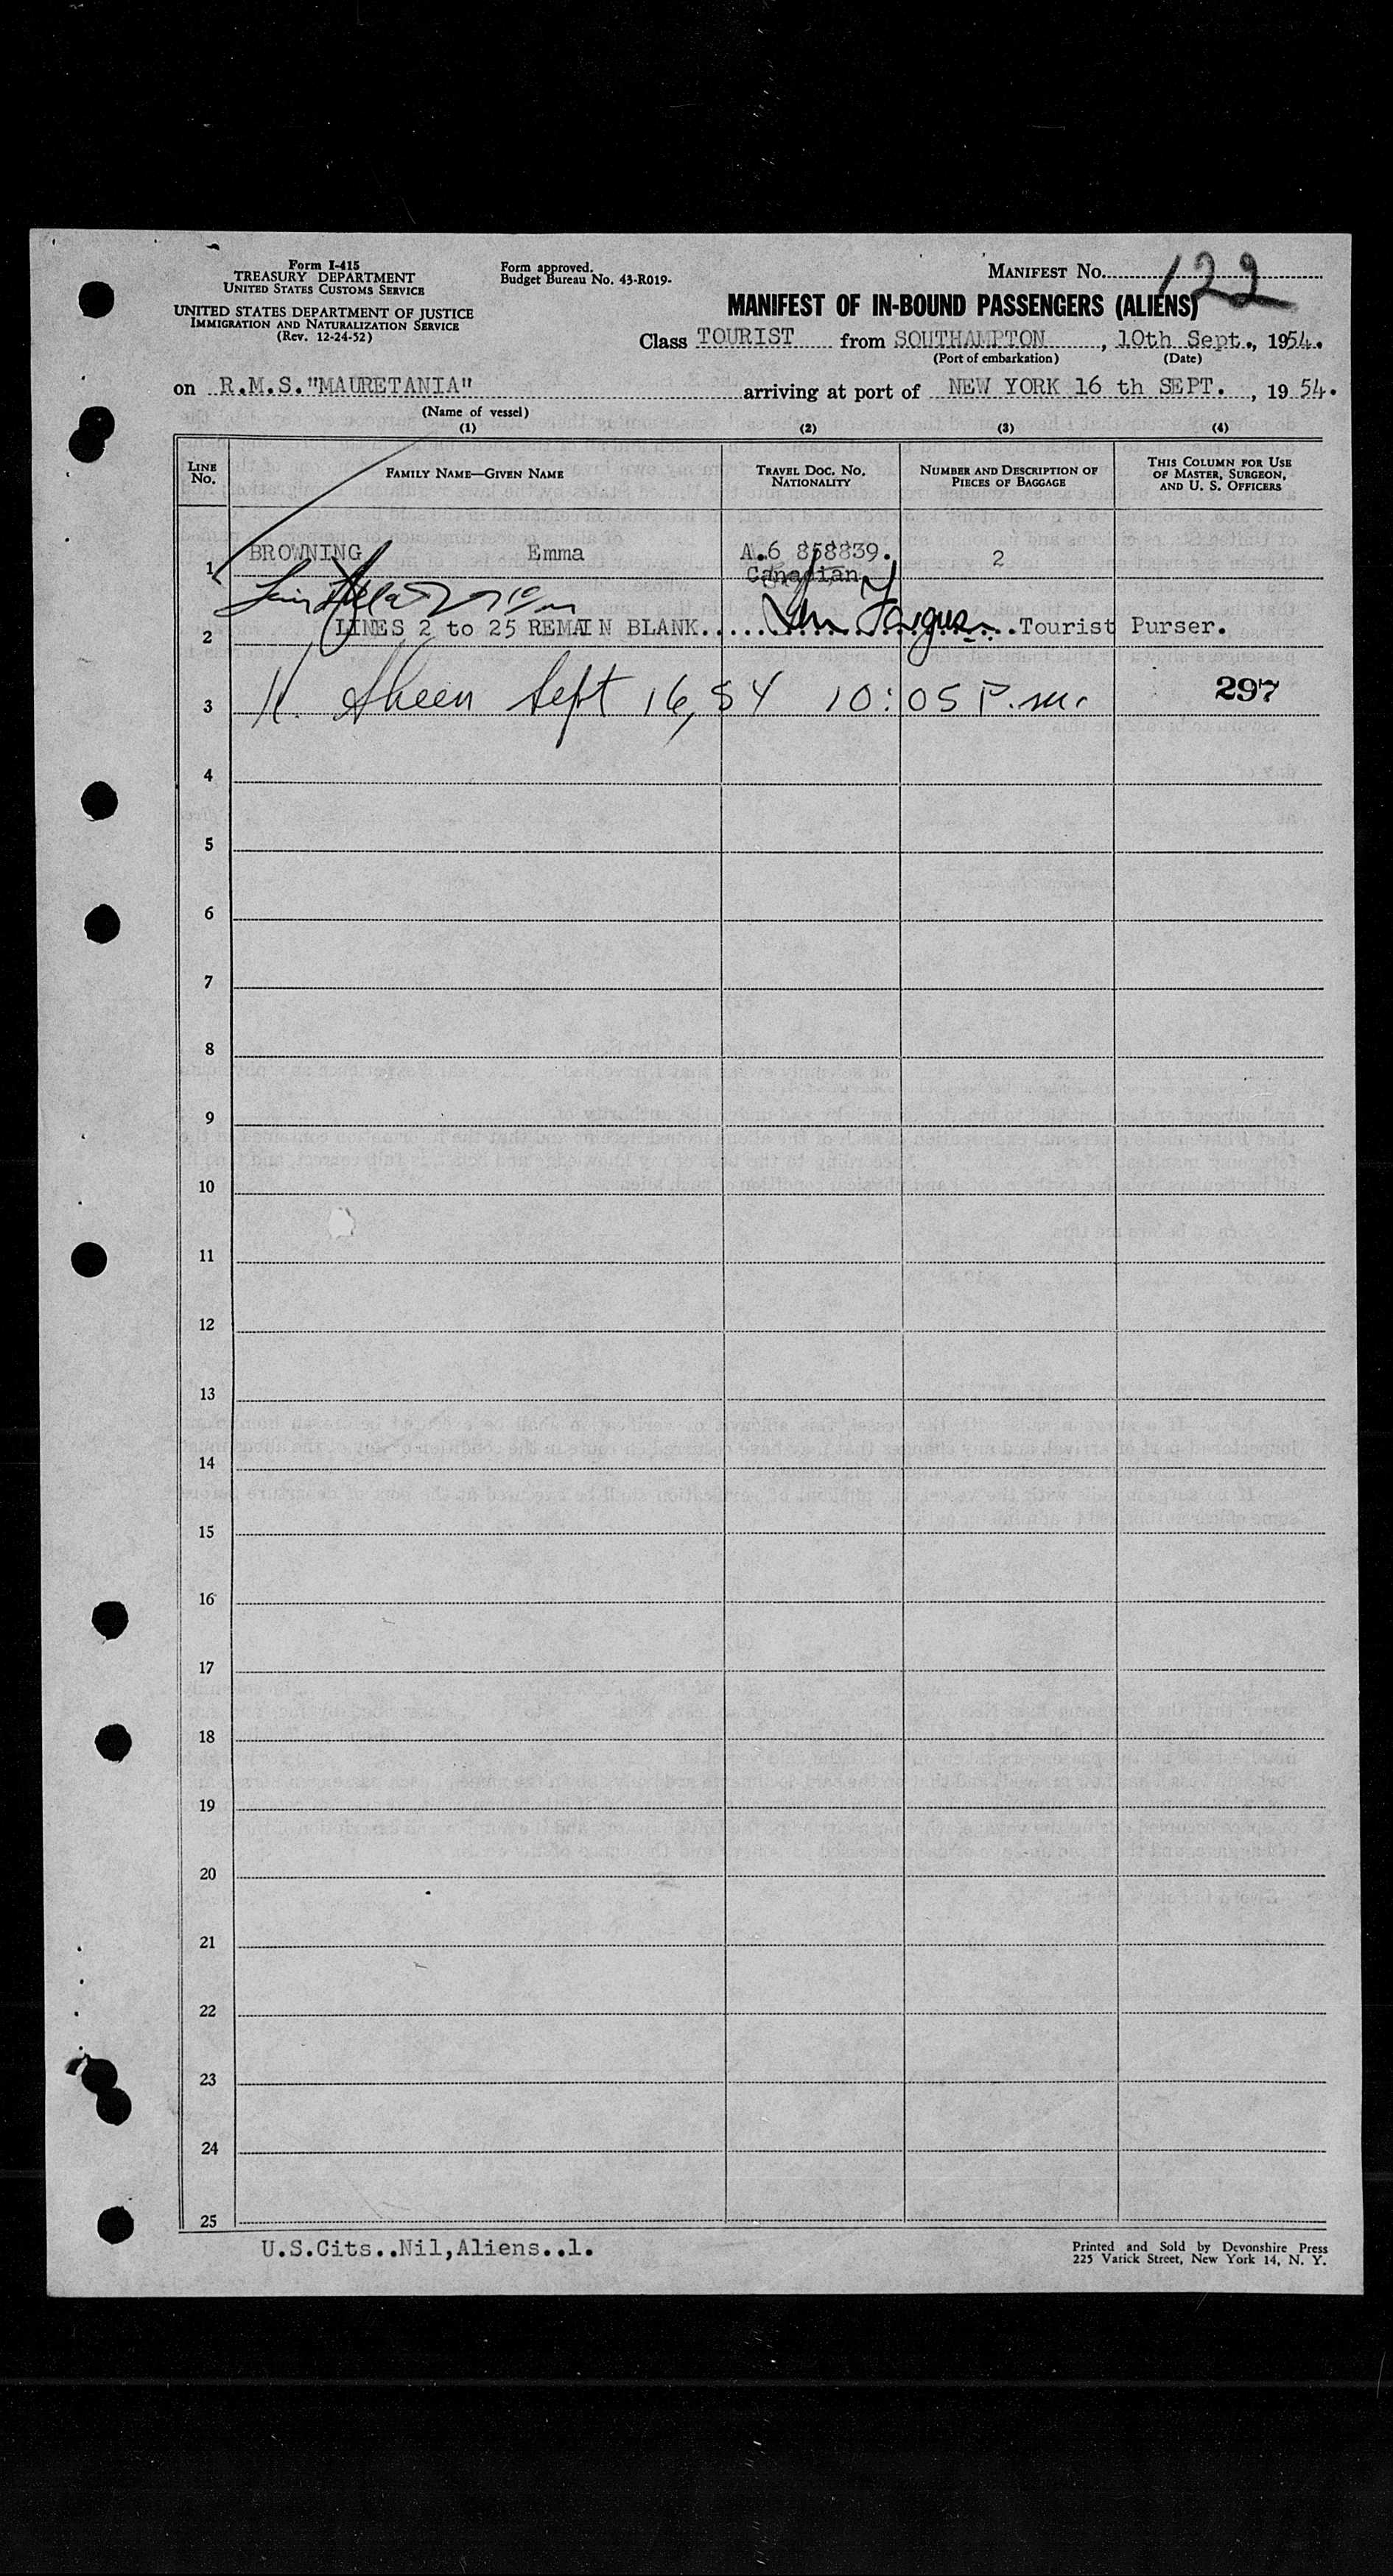 Form I-415
TREASURY DEPARTMENT
UNITED STATES CUSTOMS SERVICE
UNITED STATES DEPARTMENT OF JUSTICE
IMMIGRATION AND NATURALIZATION SERVICE
(Rev. 12-24-52)
Form approved.
Budget Bureau No. 43-R019-
MANIFEST NO. 122
MANIFEST OF IN-BOUND PASSENGERS (ALIENS)
Class TOURIST from SOUTHAMPTON, 10th Sept., 1954.
(Port of embarkation) (Date)
on R.M.S."MAURETANIA" arriving at port of NEW YORK 16 th SEPT. , 19 54.
(Name of vessel)
(1) (2) (3) (4)
LINE No. FAMILY NAME—GIVEN NAME TRAVEL DOC. NO. NATIONALITY NUMBER AND DESCRIPTION OF PIECES OF BAGGAGE THIS COLUMN FOR USE OF MASTER, SURGEON, AND U. S. OFFICERS
1 BROWNING Emma A.6 858839. 2
Canadian
2 LINES 2 to 25 REMAIN BLANK. Tourist Purser.
3 H. Sheen Sept 16, 54 10:05 P.m. 297
4
5
6
7
8
9
10
11
12
13
14
15
16
17
18
19
20
21
22
23
24
25
U.S.Cits..Nil,Aliens..1.
Printed and Sold by Devonshire Press
225 Varick Street, New York 14, N. Y.